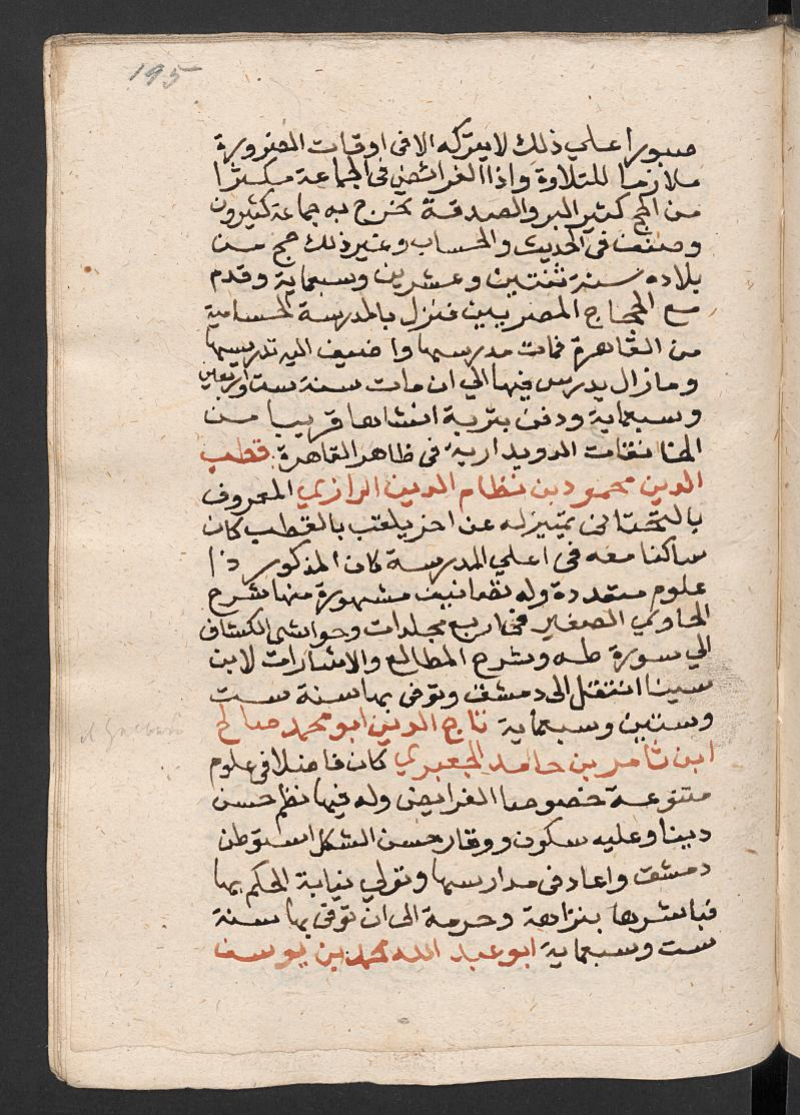 195
صبورا علي ذلك لا يتركه الا في اوقات الضرورة
ملازما للتلاوة واذا الفرائض في الجماعة مكثرا
من الحج كثير البر والصدقة تخرج به جماعة كثيرون
وصنف في الحديث والحساب وغير ذلك حج من
بلاده سنة ثنتين وعشرين وسبعماية وقدم
مع الحجاج المصريين فنزل بالمدرسة الحسامية
من القاهرة فمات مدرسها واضيف اليه تدريسها
وما زال يدرس فيها الي ان مات سنة ست واربعين
وسبعماية ودفن بتربة انشاها قريبا من
الخانقات الدويدارية في ظاهر القاهرة قطب
الدين محمود بن نظام الدين الرازي المعروف
بالتحتاني تمييزله عن اخر يلقب بالقطب كان
ساكنا معه في اعلي المدرسة كان المذكور ذا
علوم متعددة وله تصانيف مشهورة منها شرح
الحاوي الصغير في اربع مجلدات وحواشي الكشاف
الي سورة طه وشرح المطالع والاشارات لابن
سينا انتقل الى دمشق وتوفي بها سنة ست
وستين وسبعماية تاج الدين ابو محمد صالح
ابن ثامر بن حامد الجعبري كان فاضلا في علوم
متنوعة خصوصا الفرايض وله فيها نظم حسن
دينا وعليه سكون ووقار حسن الشكل استوطن
دمشق واعاد في مدارسها وتولي نيابة الحكم بها
فباشرها بنزاهة وحرمة الى ان توفي بها سنة
ست وسبعماية ابو عبد الله محمد بن يوسف